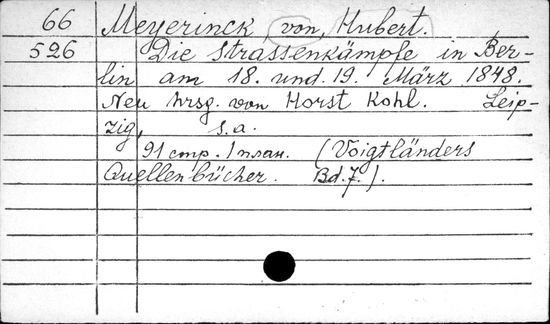 66 Meyerinck, von, Hubert.
526 Die Strassenkämpfe in Ber-
lin am 18. und. 19. März 1848.
Neu hrsg. von Horst Kohl. Leip-
zig, s.a.
91 стр. 1 план. (Voigtländers
Quellenbücher. Bd.7.).